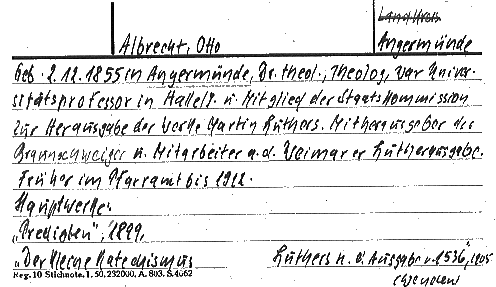 Landkreis
Albrecht, Otto
Angermünde
Geb. 2.12.1855 in Angermünde, Dr. theol., Theolog, war Univer-
sitätsprofessor in Halle/S. u. Mitglied der Staatskommission
zur Herausgabe der Werke Martin Luthers. Mitherausgeber der
Braunschweiger u. Mitarbeiter a.d. Weimarer Lutherausgabe.
Früher im Pfarramt bis 1912.
Hauptwerke:
„Predigten", 1899,
„Der Kleine Katechismus Luthers n. d. Ausgabe v. 1536", 1905
Reg. 10 Stichnote. I. 50, 232000, A. 803. S. 4062